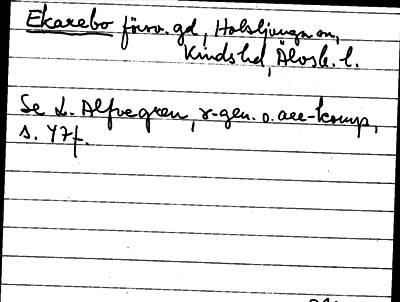 Ekarebo förv. gd, Holsljunga sn,
Kinds hd, Älvsb. l.
Se L. Alfvegren, r-gen. o. acc-komp,
s. 47f.